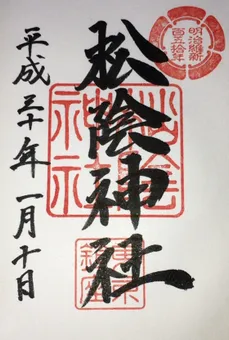 明治維新
百五十年
松陰神社
松陰
神社
東京
鎮座
平成三十年一月十日